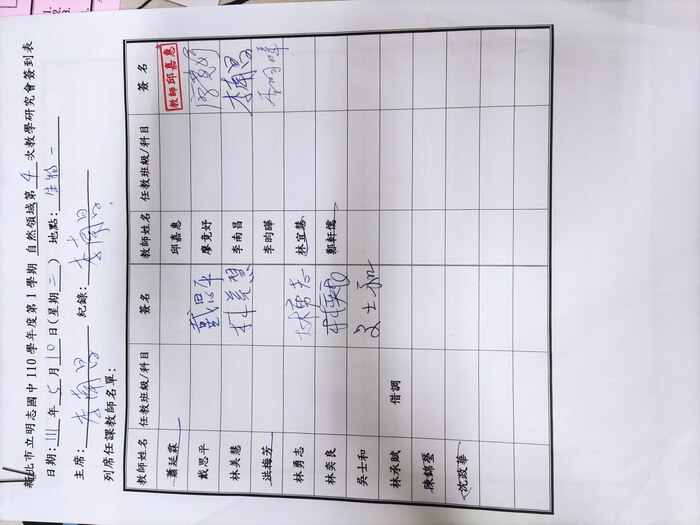 新北市立明志國中 110 學年度第 1 學期 自然領域第 4 次教學研究會簽到表
日期: 111 年 5 月 10 日(星期 二) 地點: 生物一
主席: 李南昌 紀錄: 李南昌
列席任課教師名單:
教師姓名 任教班級/科目 簽名 教師姓名 任教班級/科目 簽名
蕭廷霖 邱嘉惠 教師邱嘉惠
戴思平 戴思平 廖竟妤 廖竟妤
林美慧 林美慧 李南昌 李南昌
洪梅芳 李昀曄 李昀曄
林勇志 林勇志 林宜慧
林奕良 林奕良 鄭軒儒
吳士和 吳士和
林承賦 借調
陳錦瑩
沈政華